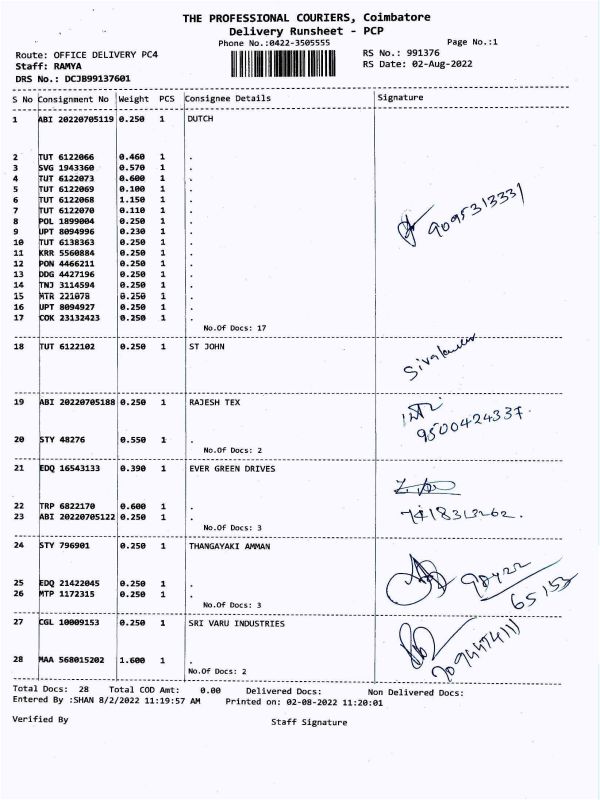 THE PROFESSIONAL COURIERS, Coimbatore
Delivery Runsheet - PCP
Phone No.:0422-3505555 Page No.:1
Route: OFFICE DELIVERY PC4 RS No.: 991376
Staff: RAMYA RS Date: 02-Aug-2022
DRS No.: DCJB99137601
S No Consignment No Weight PCS Consignee Details Signature
1 ABI 20220705119 0.250 1 DUTCH
2 TUT 6122066 0.460 1 .
3 SVG 1943360 0.570 1 .
4 TUT 6122073 0.600 1 .
5 TUT 6122069 0.100 1 .
6 TUT 6122068 1.150 1 .
7 TUT 6122070 0.110 1 .
8 POL 1899004 0.250 1 .
9 UPT 8094996 0.230 1 .
9095313331
10 TUT 6138363 0.250 1 .
11 KRR 5560884 0.250 1 .
12 PON 4466211 0.250 1 .
13 DDG 4427196 0.250 1 .
14 TNJ 3114594 0.250 1 .
15 MTR 221078 0.250 1 .
16 UPT 8094927 0.250 1 .
17 COK 23132423 0.250 1 .
No.Of Docs: 17
18 TUT 6122102 0.250 1 ST JOHN
19 ABI 20220705188 0.250 1 RAJESH TEX
9500424337.
20 STY 48276 0.550 1 .
No.Of Docs: 2
21 EDQ 16543133 0.390 1 EVER GREEN DRIVES
22 TRP 6822170 0.600 1 .
23 ABI 20220705122 0.250 1 .
No.Of Docs: 3
24 STY 796901 0.250 1 THANGAYAKI AMMAN
98422
25 EDQ 21422045 0.250 1 .
65153
26 MTP 1172315 0.250 1 .
No.Of Docs: 3
27 CGL 10009153 0.250 1 SRI VARU INDUSTRIES
28 MAA 568015202 1.600 1 .
No.Of Docs: 2
Total Docs: 28 Total COD Amt: 0.00 Delivered Docs: Non Delivered Docs:
Entered By :SHAN 8/2/2022 11:19:57 AM Printed on: 02-08-2022 11:20:01
Verified By Staff Signature